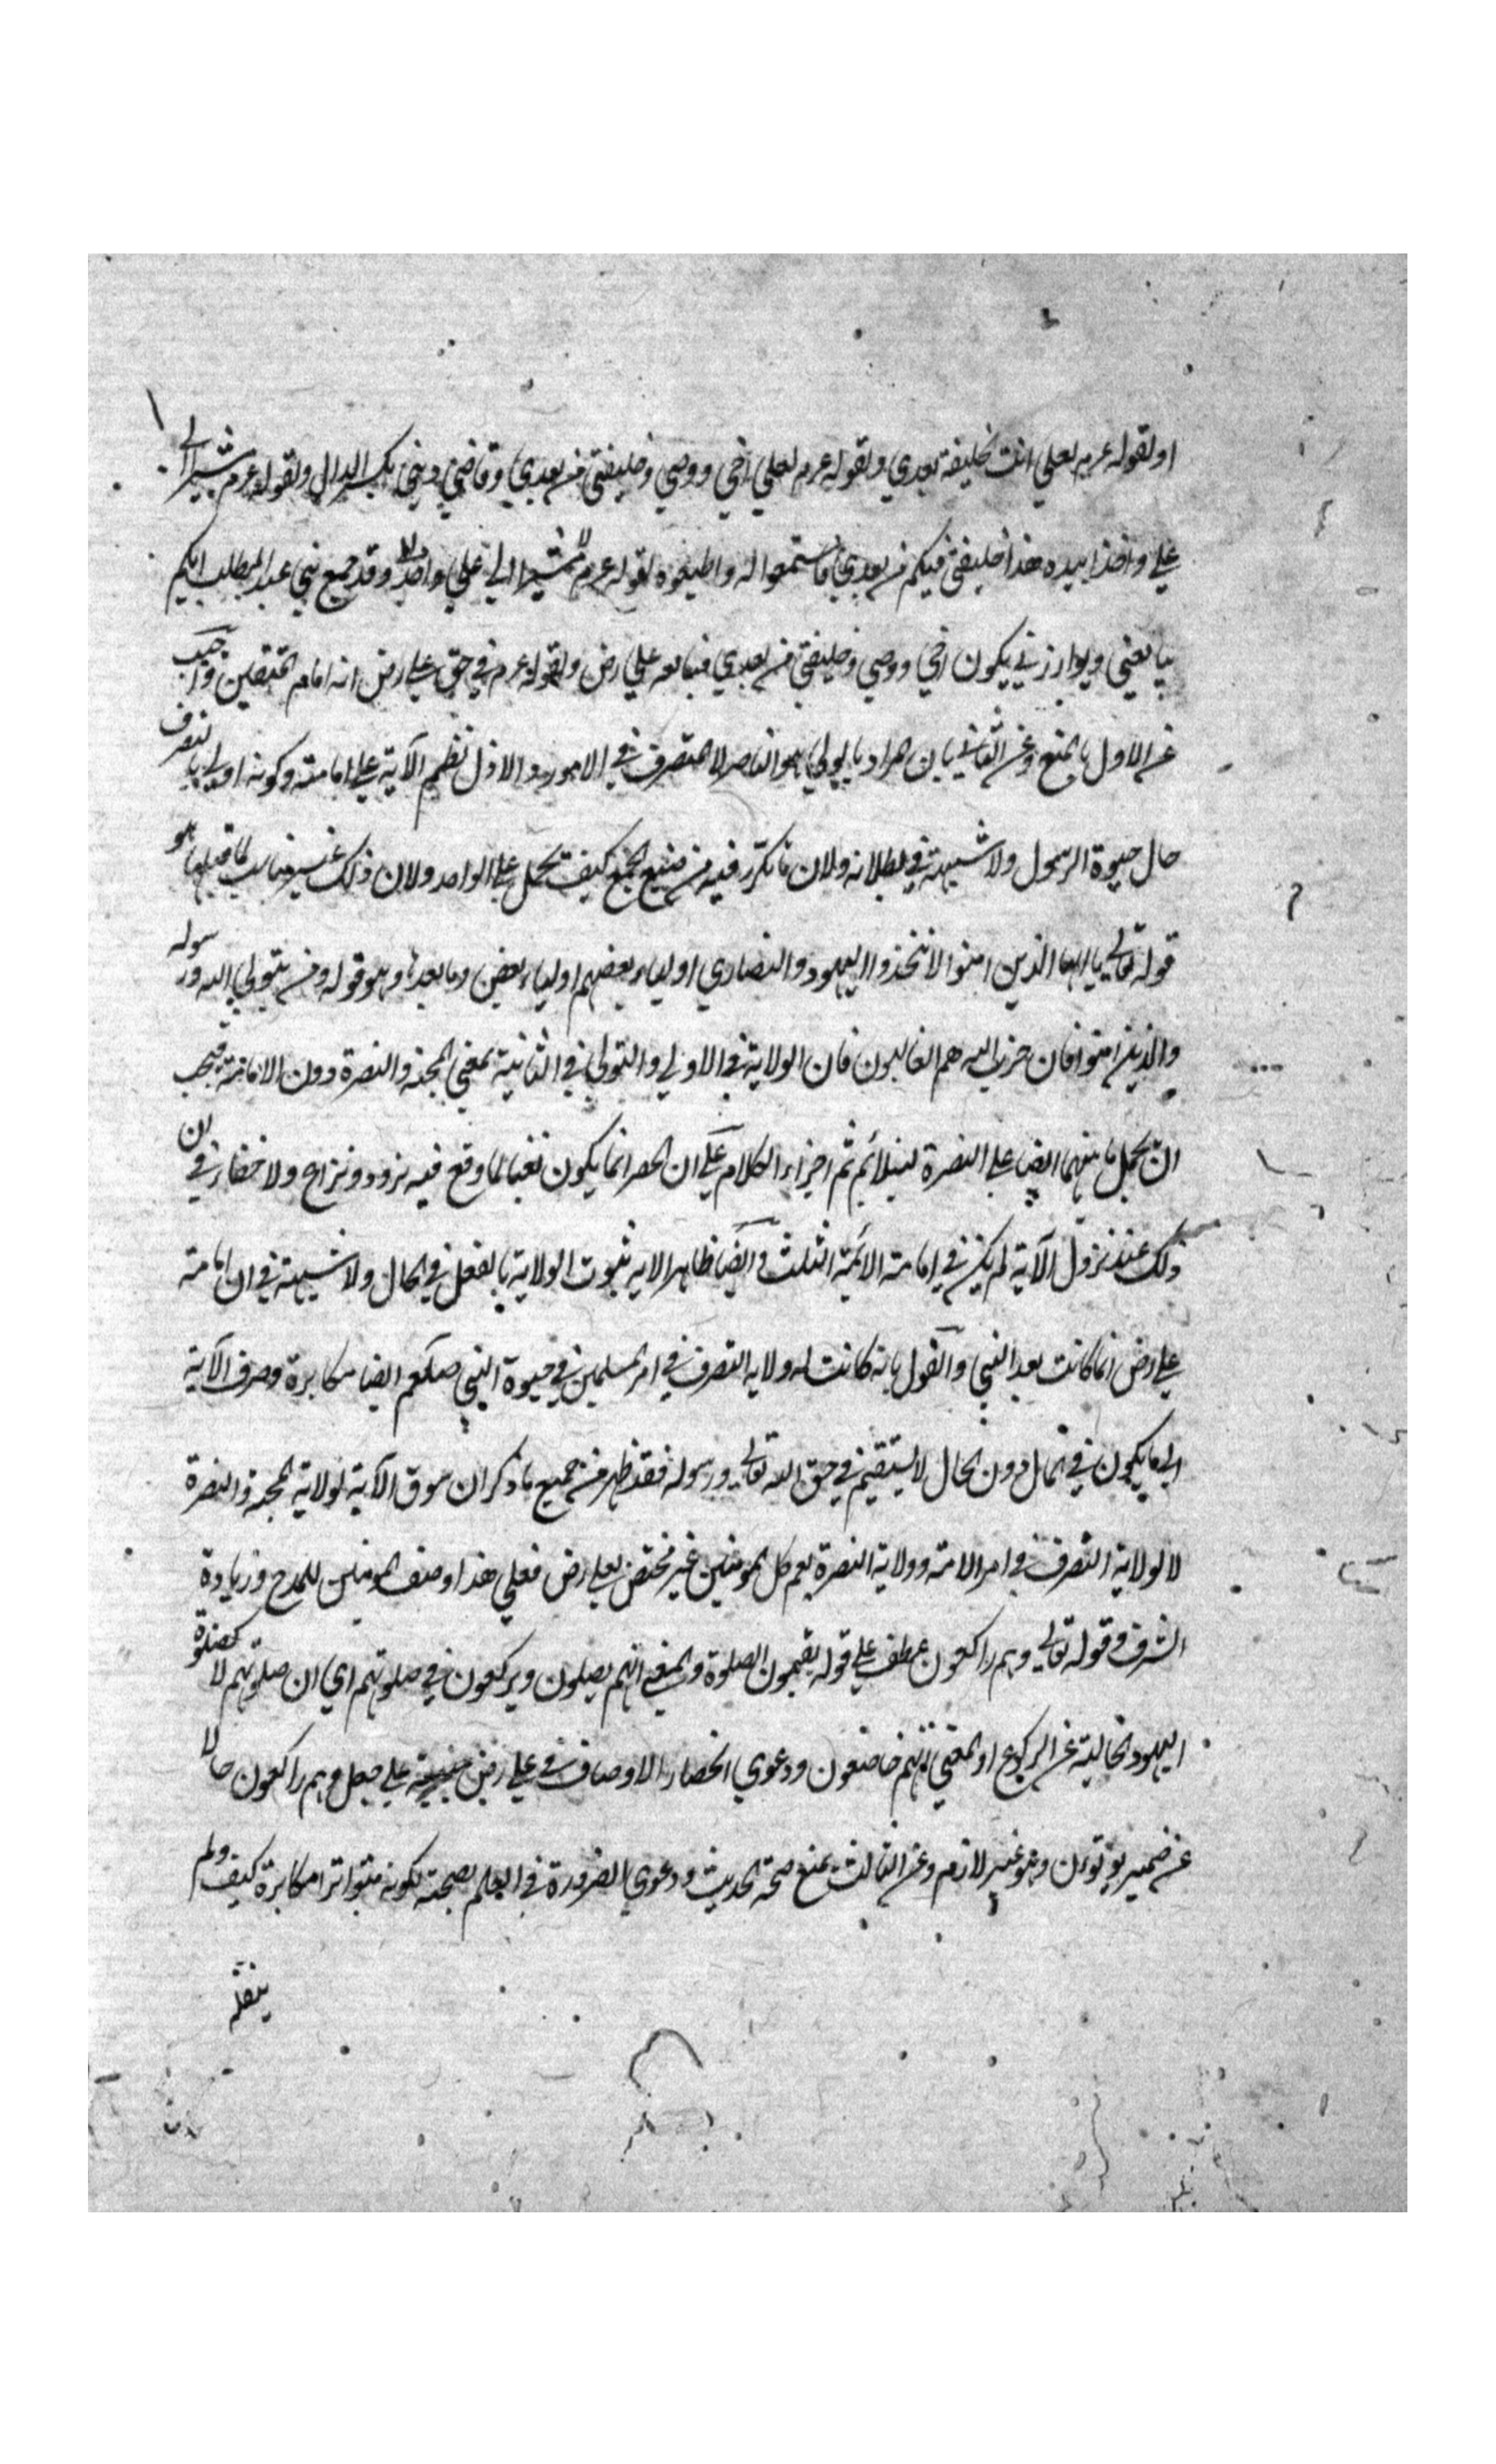 او لقوله عم لعلي انت الخليفة بعدي ولقوله عم لعلي اخي ووصي وخليفتي من بعدي وقاضي ديني بكسر الدال ولقوله عم مشيرا الى
علي واخذا بيده هذا خليفتي فيكم من بعدي فاستمعوا له واطيعوه لقوله عم مشيرا الى علي وقد جمع بني عبد المطلب ايكم
يبايعني ويوازرني يكون اخي ووصي وخليفتي من بعدي فبايعه علي رض ولقوله عم في حق علي رض انه امام المتقين واجيب
عن الاول بالمنع وعن الثاني بان المراد بالولي هو الناصر لا المتصرف في الامور والا لدل نظم الآية على امامته وكونه اولى بالتصرف
حال حيوة الرسول ولا شبهة في بطلانه ولان ما تكرر فيه من صيغ الجمع كيف يحمل على الواحد ولان ذلك غير مناسب لما قبلها هو
قوله تعالى يا ايها الذين امنوا لا تتخذوا اليهود والنصاري اولياء بعضهم اولياء بعض وما بعدها وهو قوله ومن يتولى الله ورسوله
والذين امنوا فان حزب الله هم الغالبون فان الولاية في الاولى والتولي في الثانية بمعنى المحبة والنصرة دون الامامة فيجب
ان يحمل ما بينهما ايضا على النصرة ليتلائم ثم اجزاء الكلام على ان الحصر انما يكون نفيا لما وقع فيه تردد ونزاع ولا خفاء في ان
ذلك عند نزول الآية لم يكن في امامة الائمة الثلث وايضا ظاهر الاية ثبوت الولاية بالفعل في الحال ولا شبهة في ان امامة
علي رض انما كانت بعد النبي والقول بانه كانت له ولاية التصرف في امر المسلمين في حيوة النبي صلعم ايضا مكابرة وصرف الآية
الى ما يكون في المآل دون الحال لا يستقيم في حق الله تعالى ورسوله فقد ظهر من جميع ما ذكر ان سوق الآية لولاية المحبة والنصرة
لا لولاية التصرف في امر الامة وولاية النصرة يعم كل المومنين غير مختص بعلي رض فعلى هذا وصف المومنين للمدح وزيادة
الشرف وقوله تعالى وهم راكعون عطف على قوله يقيمون الصلوة والمعنى انهم يصلون ويركعون في صلوتهم اي ان صلوتهم لا كصلوة
اليهود خالية عن الركوع او المعنى انهم خاضعون ودعوي انحصار الاوصاف في علي رض مبنية على جعل وهم راكعون حالا
عن ضمير يوتون وهو غير لازم وعن الثالث بمنع صحة الحديث ودعوي الضرورة في العلم بصحته لكونه متواترا مكابرة كيف ولم
ينقله